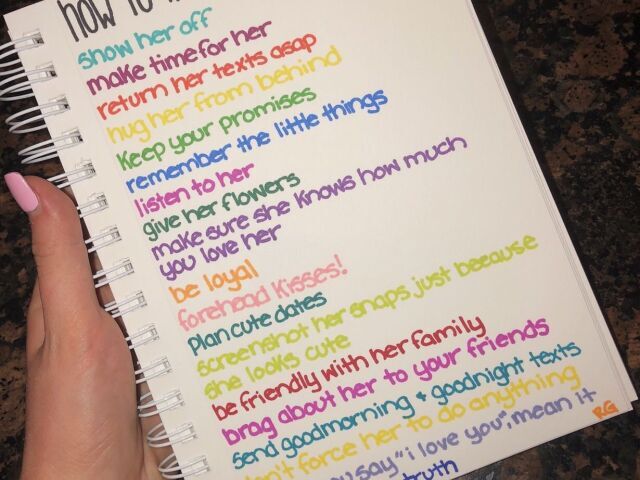 HOW TO
show her off
make time for her
return her texts asap
hug her from behind
keep your promises
remember the little things
listen to her
give her flowers
make sure she knows how much
you love her
be loyal
forehead kisses!
plan cute dates
screenshot her snaps just because
she looks cute
be friendly with her family
brag about her to your friends
send goodmorning + goodnight texts
don't force her to do anything
you say "i love you", mean it
truth
RG